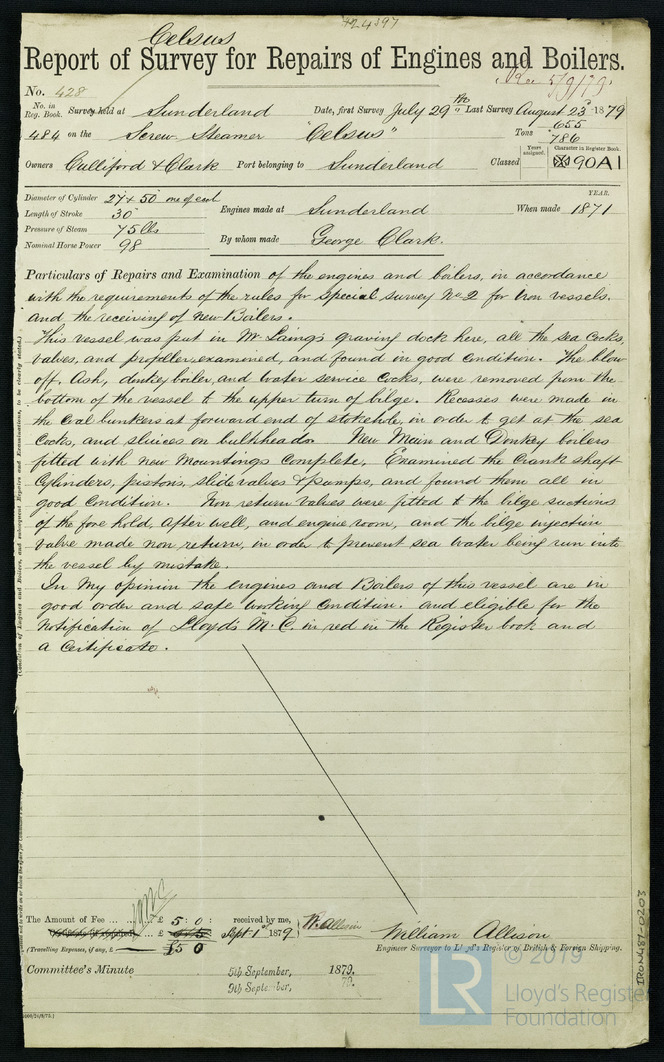 +24397
Celsus
Report of Survey for Repairs of Engines and Boilers.
Rec 5/9/79
No. 428
No. in Reg. Book. Survey held at Sunderland Date, first Survey July 29th Last Survey August 23d 1879
484 on the Screw Steamer "Celsus" Tons 655 786
Owners Culliford & Clark Port belonging to Sunderland Classed Years assigned. Character in Register Book. 90A1
Diameter of Cylinder 27 + 50" one of each
Length of Stroke 30"
Pressure of Steam 75 lbs
Nominal Horse Power 98
Engines made at Sunderland When made YEAR. 1871
By whom made George Clark.
Particulars of Repairs and Examination of the engines and boilers, in accordance
with the requirements of the rules for special survey No 2 for Iron vessels.
and the receiving of new Boilers.
This vessel was put in Mr Laing's graving dock here, all the sea cocks,
valves, and propeller examined, and found in good condition. The blow
off, Ash, donkey boiler, and water service cocks, were removed from the
bottom of the vessel to the upper turn of bilge. Recesses were made in
the coal bunkers at forward end of stokehole, in order to get at the sea
cocks, and sluices on bulkheads. New Main and Donkey boilers
fitted with new Mountings complete, Examined the crank shaft
cylinders, pistons, slide valves & pumps, and found them all in
good condition. Non return valves were fitted to the bilge suctions
of the fore hold, after well, and engine room, and the bilge injection
valve made non return, in order to prevent sea water being run into
the vessel by mistake.
In my opinion the engines and Boilers of this vessel are in
good order and safe working condition. and eligible for the
Notification of Lloyd's M. C. in red in the Register book and
a Certificate.
The Amount of Fee ... ... £ 5 : 0 : received by me,
Sept 1st 1879 W. Allison
(Travelling Expenses, if any, £ £5 0
William Allison
Engineer Surveyor to Lloyd's Register of British & Foreign Shipping.
Committee's Minute 5th September, 1879.
9th September, 79.
IRON487-0203
© 2019
LR
Lloyd's Register
Foundation